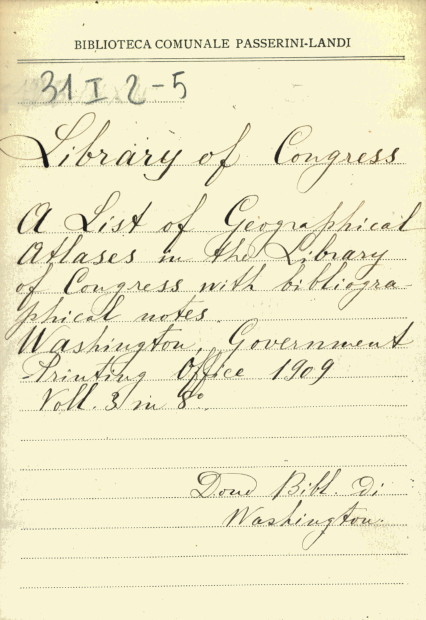 BIBLIOTECA COMUNALE PASSERINI-LANDI
31 I 2-5
Library of Congress
A List of Geographical
Atlases in the Library
of Congress with bibliogra-
phical notes
Washington, Government
Printing Office 1909
Voll. 3 in 8°.
Dono Bibl. di
Washington.